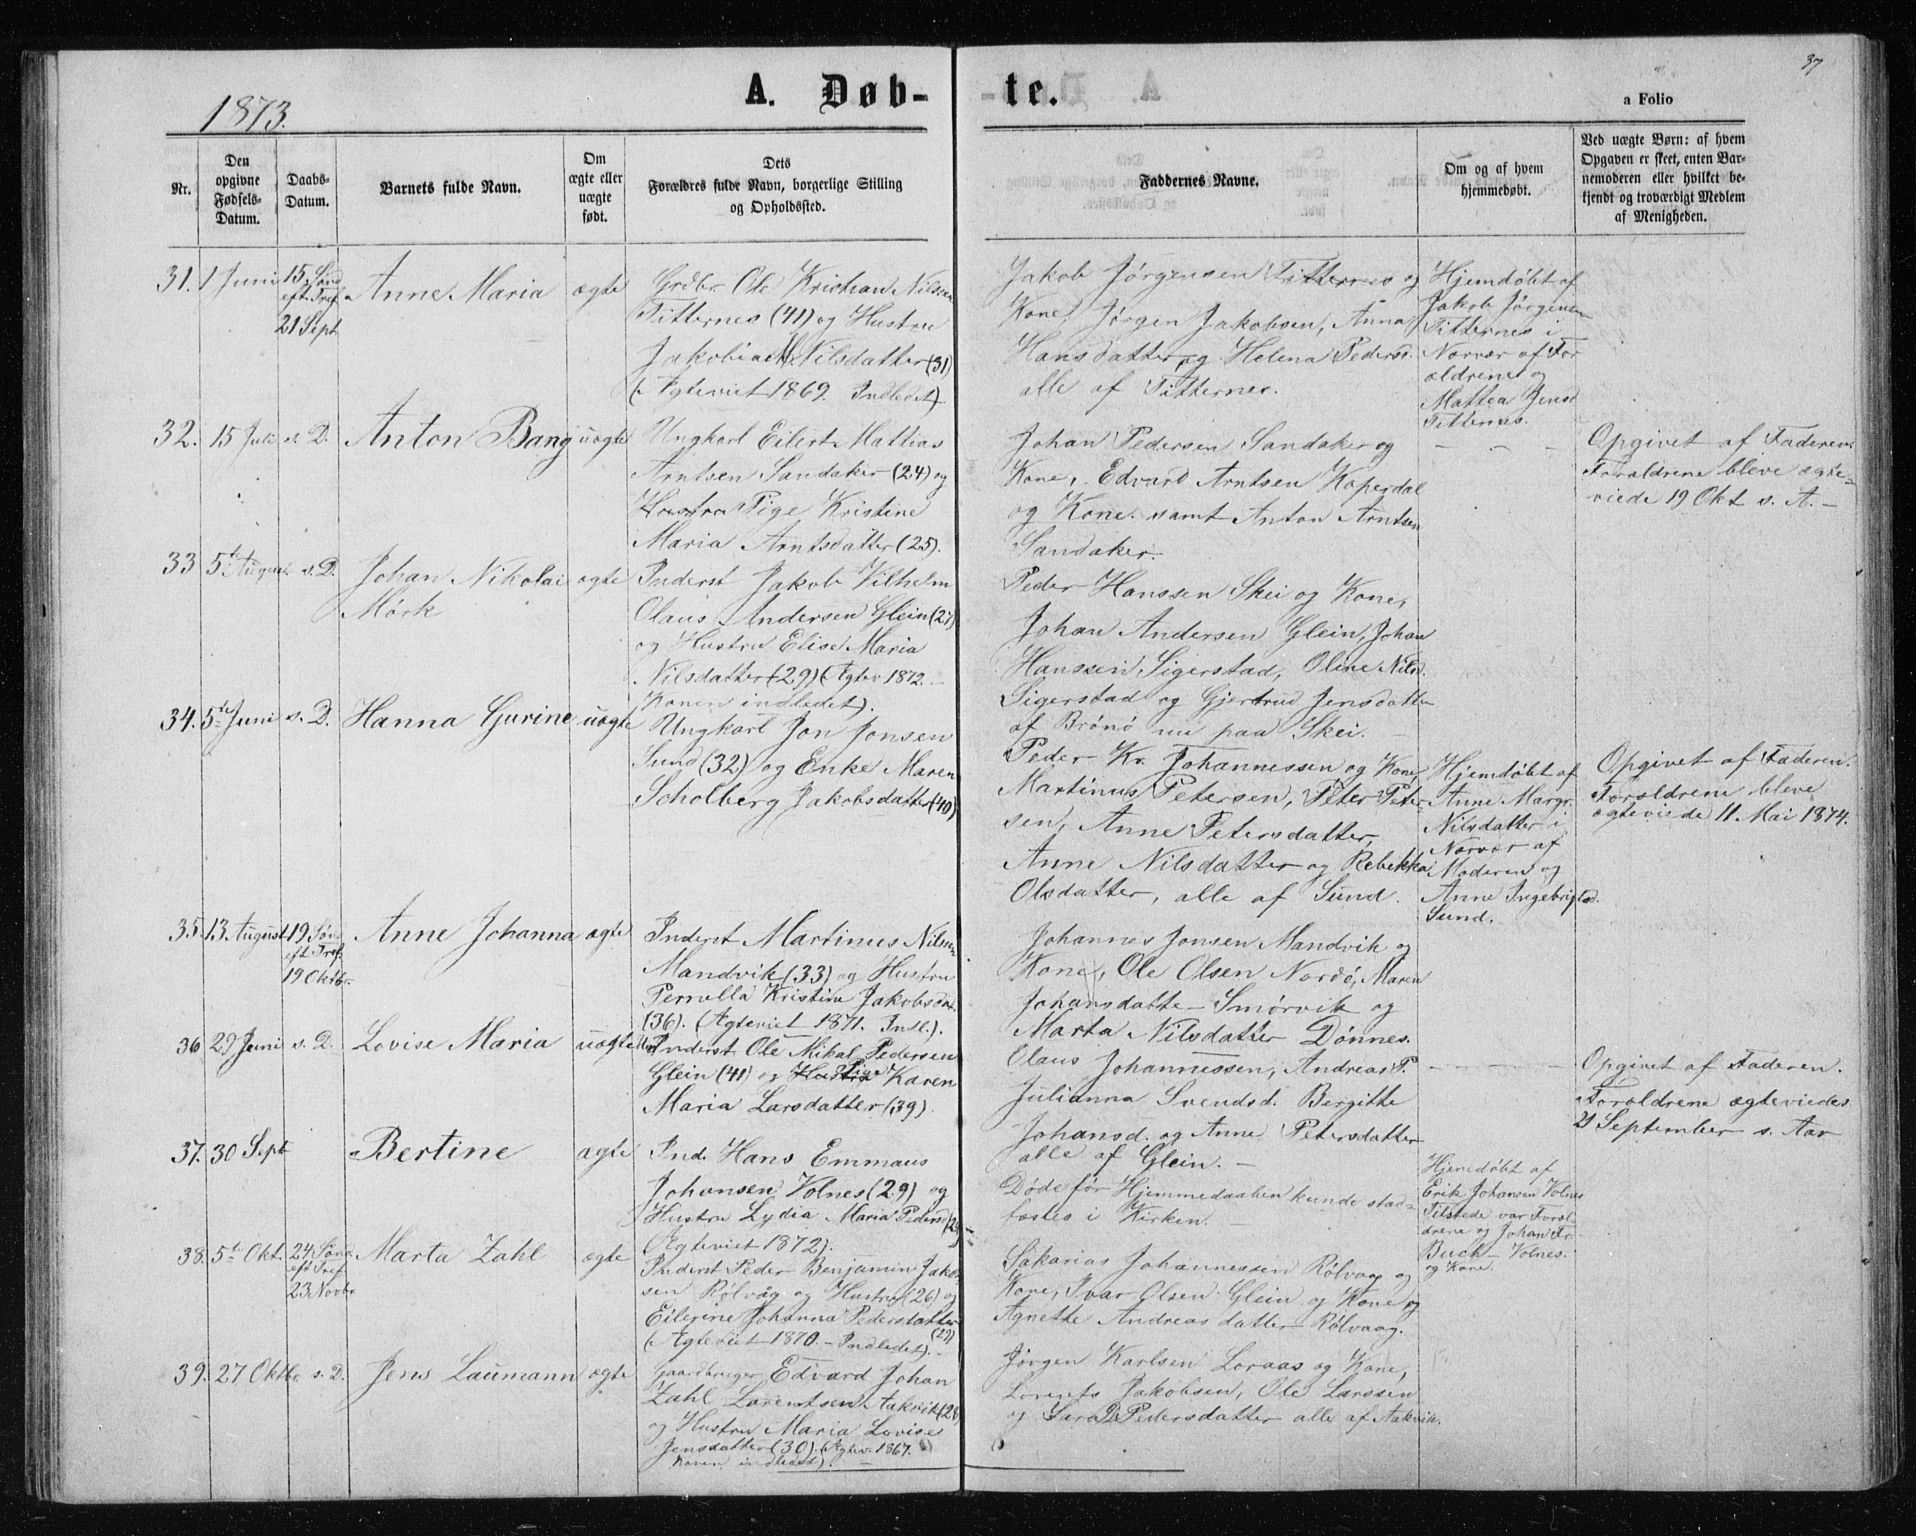 37
1873.
A. Døb-
te.
a Folio
Nr.
Den
opgivne
Fødsels-
Datum.
Daabs-
Datum.
Barnets fulde Navn.
Om
ægte eller
uægte
født.
Dets
Forældres fulde Navn, borgerlige Stilling
og Opholdssted.
Faddernes Navne.
Om og af hvem
hjemmedøbt.
Ved uægte Børn: af hvem
Opgaven er skeet, enten Bar-
nemoderen eller hvilket be-
kjendt og troværdigt Medlem
af Menigheden.
31. 1 Juni
15. Sønd
eft. Tref.
21 Sept
Anne Maria
ægte
Grdbr. Ole Kristian Nilssen
Titternes (41) og Hustru
Jakobia Nilsdatter (31)
(Ægteviet 1869. Indledet).
Jakob Jørgensen Titternes og
Kone, Jørgen Jakobsen, Anna
Hansdatter og Helena Pedersd.
alle af Titternes.
Hjemdøbt af
Jakob Jørgensen
Titternes i
Nærvær af For
ældrene og
Mattea Jensd
Titternes.
32. 15 Juli s. D. Anton Bang uægte
Ungkarl Eilert Mattias
Arntsen Sandaker (24) og
Hustru Pige Kristine
Maria Arntsdatter (25).
Johan Pedersen Sandaker og
Kone, Edvard Arntsen Koperdal
og Kone. samt Anton Arntsen
Sandaker.
Opgivet af Faderen.
Forældrene bleve ægte-
viede 19 Okt s. A. –
33 5t August s. D.
Johan Nikolai
Mørk
ægte
Inderst Jakob Vilhelm
Olaus Andersen Glein (27)
og Hustru Elise Maria
Nilsdatter (29) (Ægtev 1872.
Konen indledet).
Peder Hanssen Skei og Kone,
Johan Andersen Glein, Johan
Hanssen Sigerstad, Oline Nilsd.
Sigerstad og Gjertrud Jensdatter
af Brønø nu paa Skei. –
34. 5te Juni s. D. Hanna Gurine uægte
Ungkarl Jon Jonsen
Sund (32) og Enke Maren
Scholberg Jakobsdatter (40)
Peder Kr. Johannessen og Kone,
Martinus Petersen, Peter Peter-
sen, Anne Petersdatter,
Anne Nilsdatter og Rebekka
Olsdatter, alle af Sund.
Hjemdøbt af
Anne Margr.
Nilsdatter i
Nærvær af
Moderen og
Anne Ingebrigtsd.
Sund.
Opgivet af Faderen.
Forældrene bleve
ægteviede 11. Mai 1874.
35. 13 August
19 Sønd
eft Tref.
19 Oktbr.
Anne Johanna ægte
Inderst Martinus Nilssen
Mandvik (33) og Hustru
Pernella Kristine Jakobsdat.
(36). (Ægteviet 1871. Indl.).
Johannes Jonsen Mandvik og
Kone, Ole Olsen Nordø, Maren
Johansdatte Smørvik og
Marta Nilsdatter Dønnes.
36 29 Juni s. D. Lovise Maria uægte
Inderst Ole Mikal Pedersen
Glein (41) og Hustru Pige Karen
Maria Larsdatter (39).
Olaus Johannessen, Andreas P.
Julianna Svendsd. Bergitte
Johansd. og Anne Petersdatter
alle af Glein. –
Opgivet af Faderen.
Forældrene ægteviedes
21 September s. Aar
37. 30 Sept
Bertine
ægte
Ind. Hans Emmaus
Johansen Volnes (29) og
Hustru Lydia Maria Pedersd
(Ægteviet 1872).
Døde før Hjemmedaaben kunde stad-
fæstes i Kirken. –
Hjemdøbt af
Erik Johansen Volnes
Tilstede var Foræl
drene og Johan Fr.
Buck – Volnes.
og Kone.
38. 5te Okt.
24. Sønd
eft Tref
23 Novbr
Marta Zahl
ægte
Inderst Peder Benjamin Jakob-
sen Rølvag og Hustru (26) og
Eilerine Johanna Pedersdatter
(29)
(Ægteviet 1870. – Indledet). –
Sakarias Johannessen Rølvaag og
Kone, Ivar Olsen Glein og Kone og
Agnette Andreasdatter Rølvaag.
39. 27 Oktbr. s. D. Jens Laumann ægte
Gaardbruger Edvard Johan
Zahl Lorentsen Aakvik (28)
og Hustru Maria Lovise
Jensdatter (30). (Ægtev. 1867.
Konen indledet).
Jørgen Karlsen Loraas og Kone,
Lorents Jakobsen, Ole Larssen
og Sara Pedersdatter alle af Aakvik.